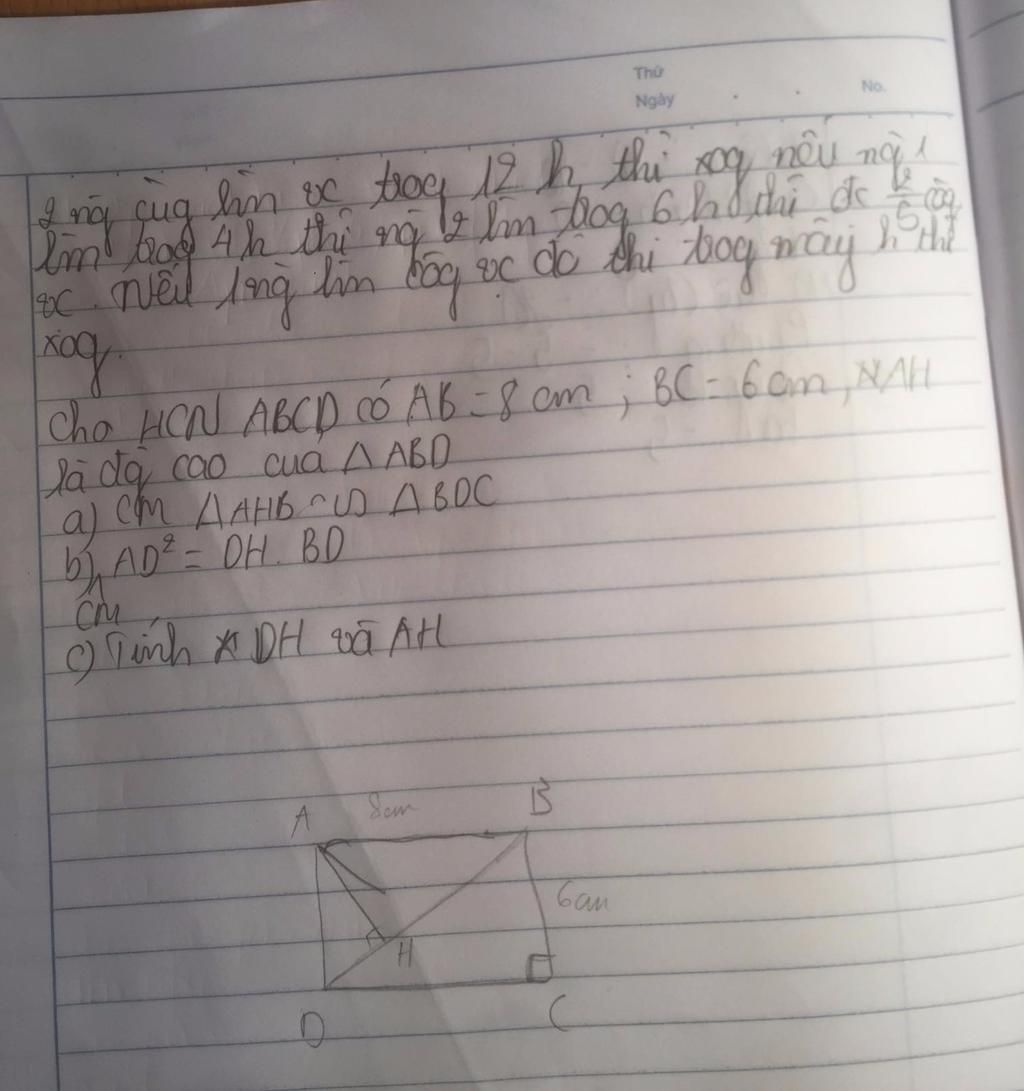 Thứ
Ngày . . No.
2 ng̀ cùg làm vc trog 12 h thì xog nếu ng̀ 1
làm trog 4h thì ng̀ 2 làm trog 6 h thì đc 2/5 côg
vc. Nếu 1 ng̀ làm côg vc đó thì trog mấy h thì
xog.
Cho HCN ABCD có AB = 8 cm ; BC = 6 cm, AH
là đg̀ cao của Δ ABD
a) Cm Δ AHB ∽ Δ BDC
b) AD² = DH. BD
Cm
c) Tính DH và AH
A 8cm B
6cm
H
D C